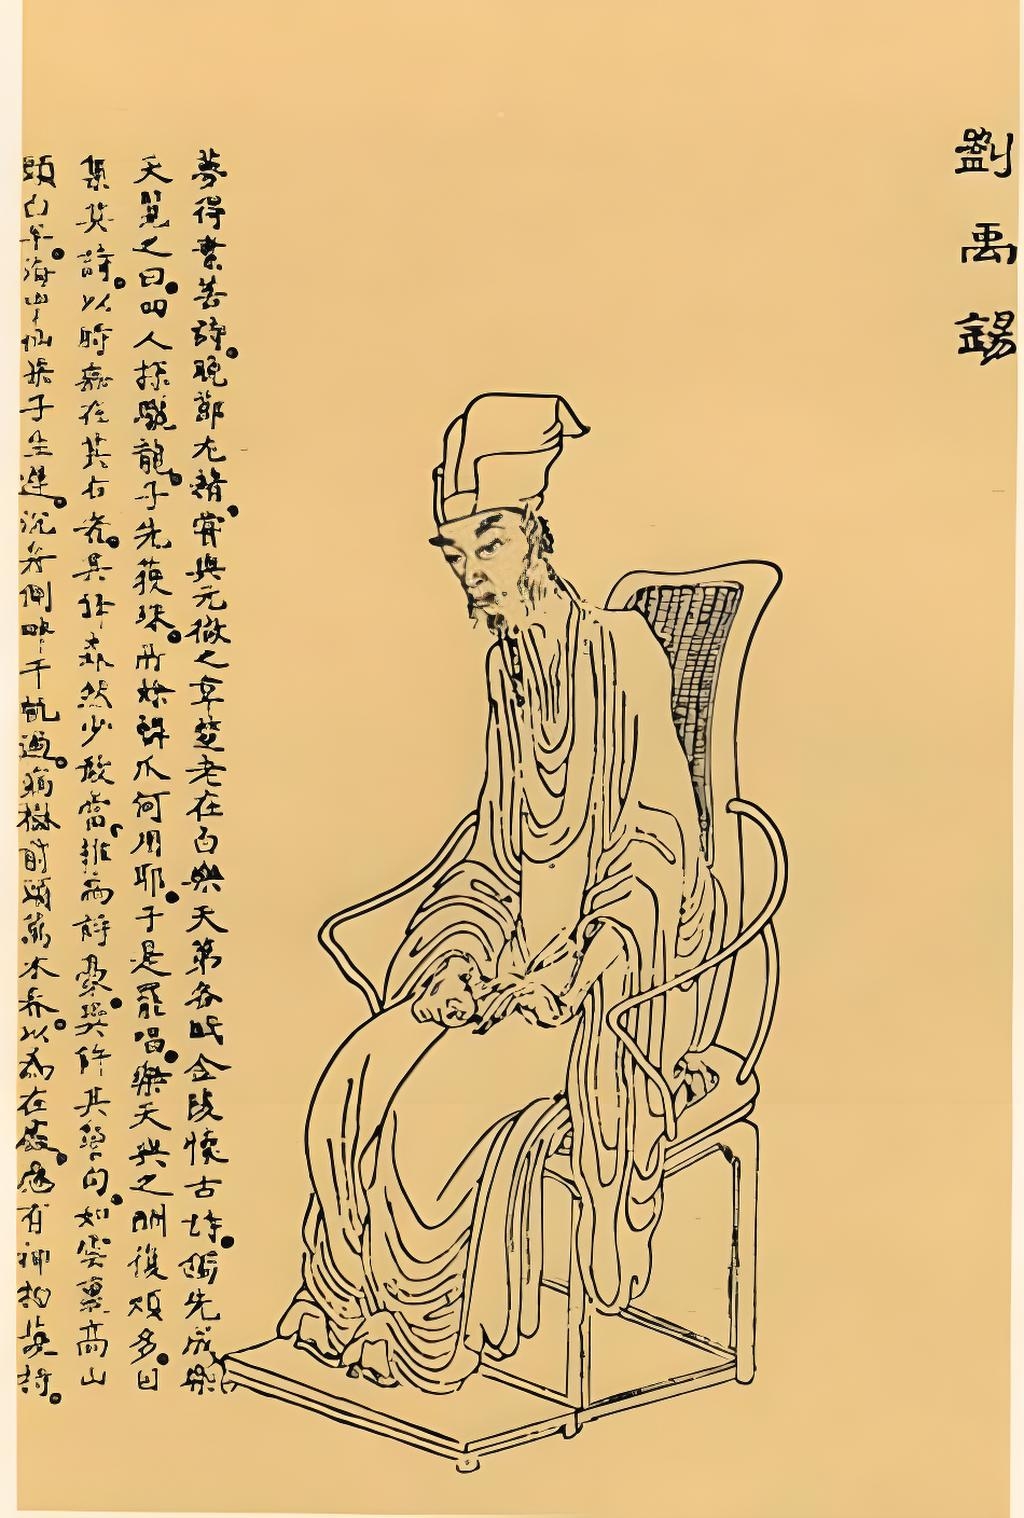 劉禹錫
夢得素善詩晚節尤精嘗與元微之韋楚老在白樂天第各賦金陵懷古詩錫先成樂
天覽之曰四人探驪龍子先獲珠所餘鱗爪何用耶于是罷唱樂天與之酬復頗多曰
集其詩以時在其右者其許少敢當詩豪與許其句如雪裏高山
頭白早海中仙果子生遲沉舟側畔千帆過病樹前頭萬木春以為在應有神物護持